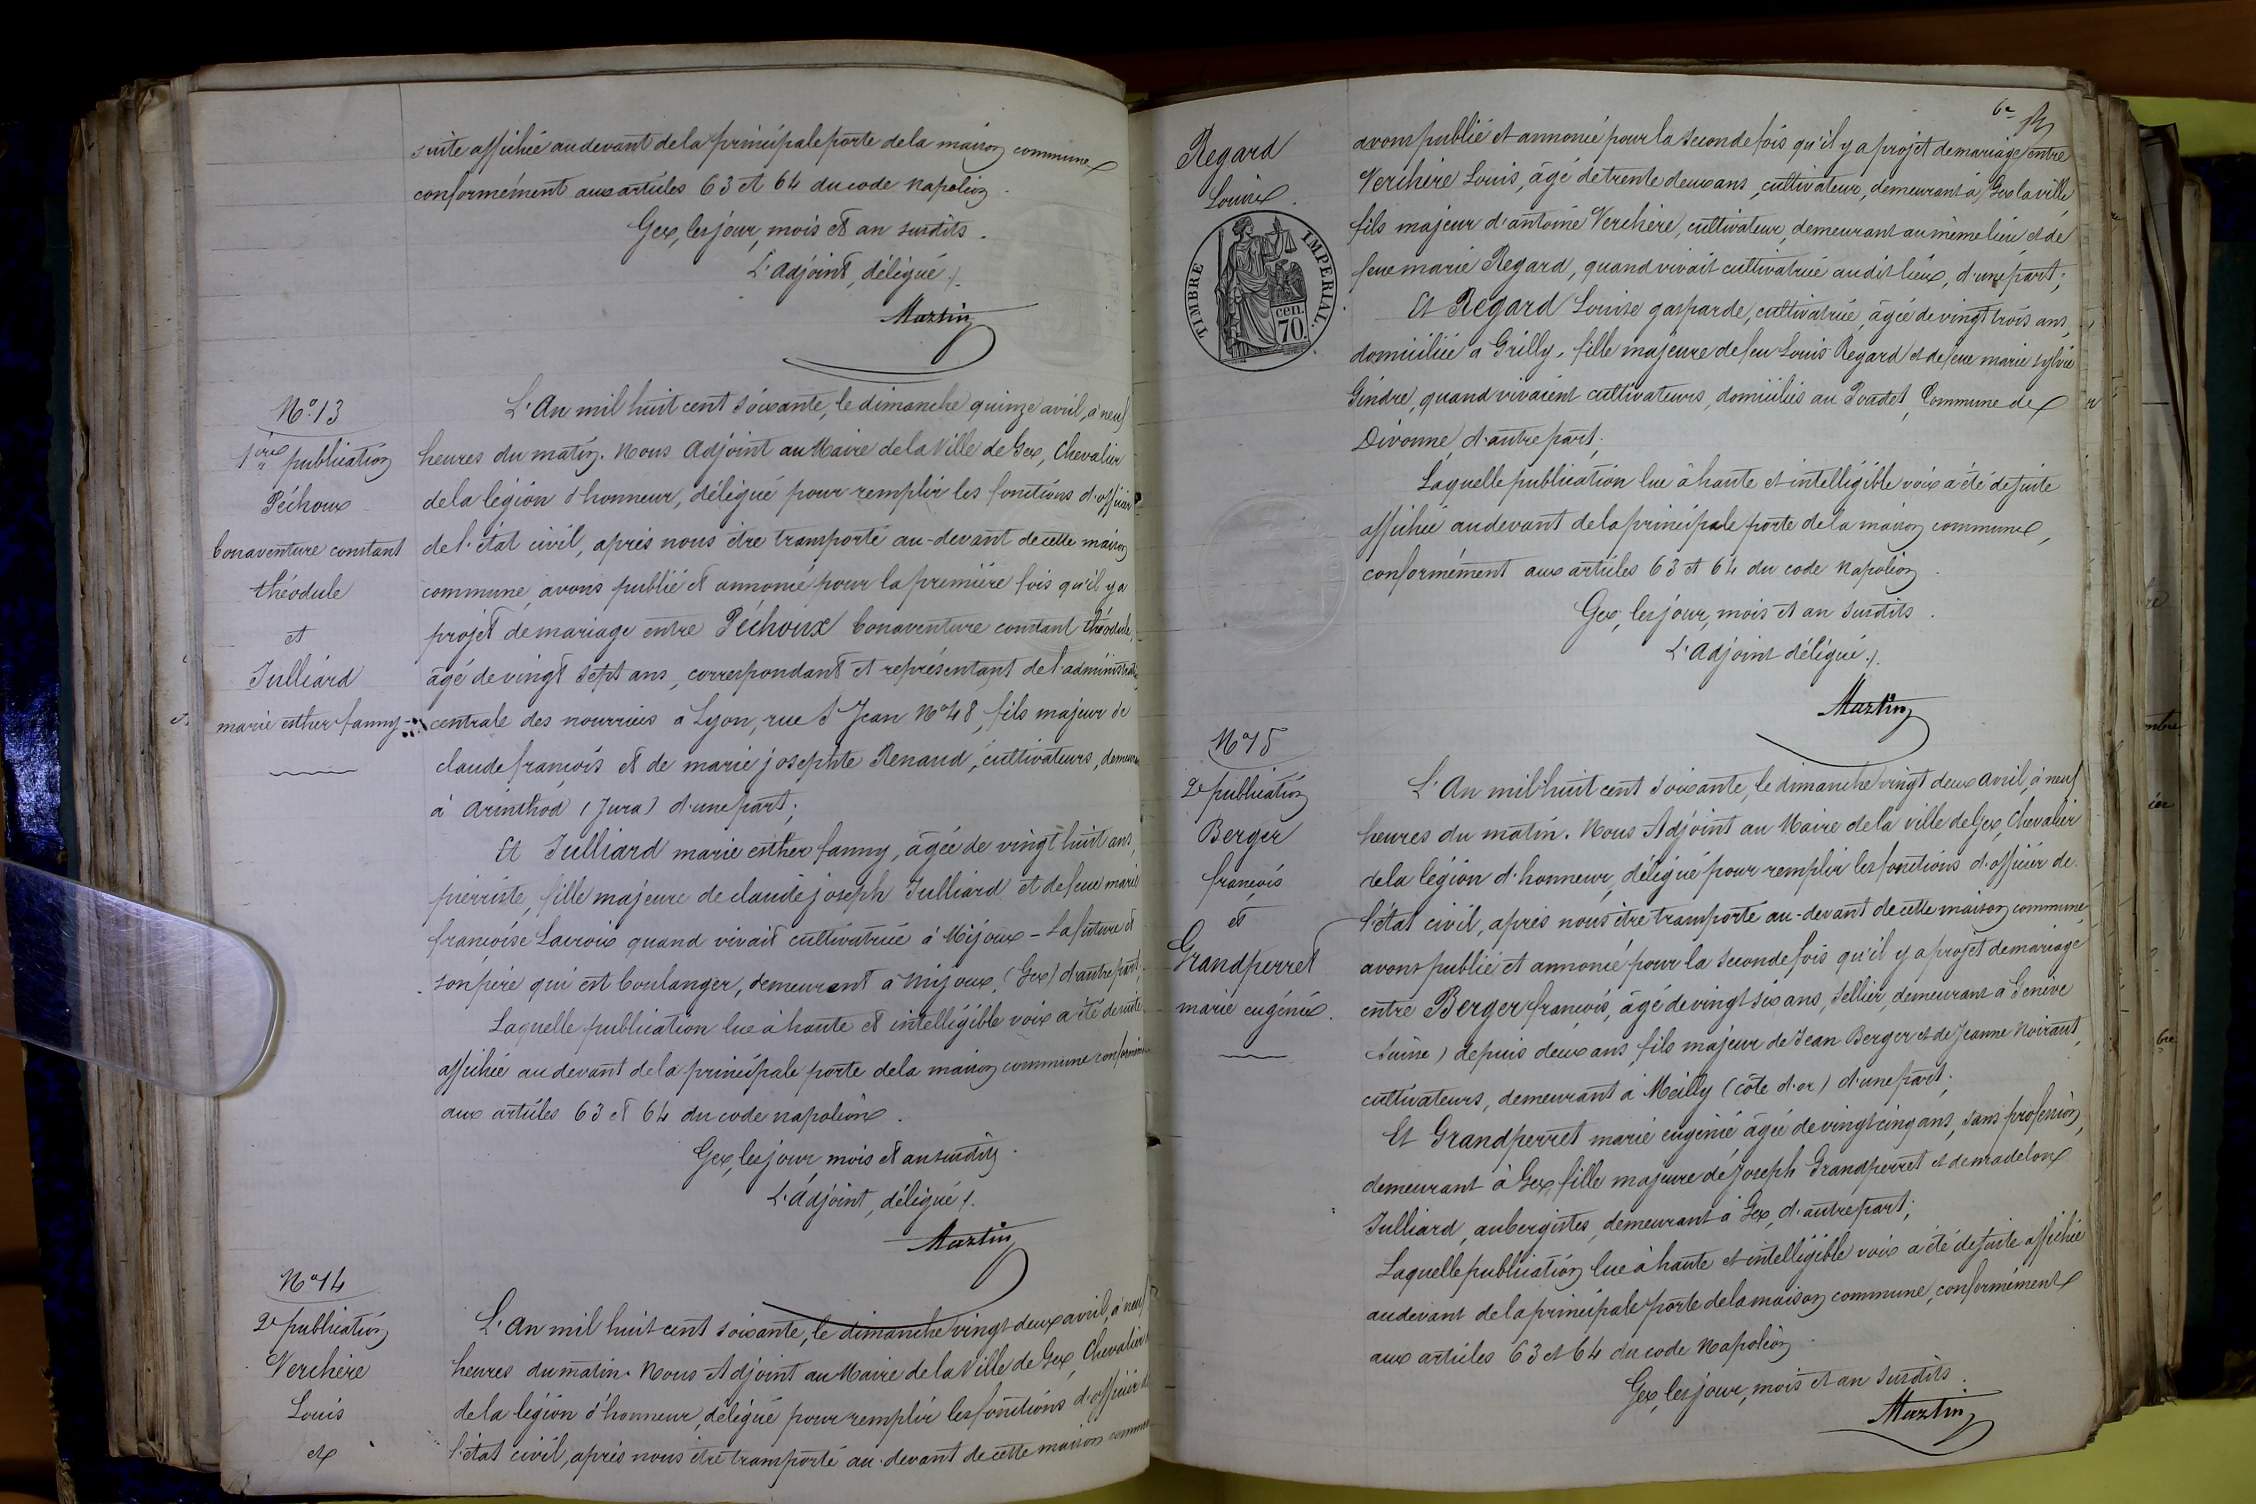 suite affichée au devant de la principale porte de la maison commune
conformément aux articles 63 et 64 du code napoléon.
Gex, les jour, mois et an susdits.
L'adjoint, délégué /.
Martin
N° 13
1ère publication
Péchoux
bonaventure constant
théodule
et
Julliard
marie esther fanny
L'An mil huit cent soixante, le dimanche quinze avril, à neuf
heures du matin. Nous Adjoint au Maire de la Ville de Gex, Chevalier
de la légion d'honneur, délégué pour remplir les fonctions d'officier
de l'état civil, après nous être transporté au-devant de cette maison
commune, avons publié et annoncé pour la première fois qu'il y a
projet de mariage entre Péchoux bonaventure constant théodule,
âgé de vingt sept ans, correspondant et représentant de l'administration
centrale des nourrices à Lyon, rue St Jean N° 48, fils majeur de
claude françois et de marie josephte Renaud, cultivateurs, demeurant
à arinthod (Jura) d'une part;
Et Julliard marie esther fanny, âgée de vingt huit ans,
pierriste, fille majeure de claude joseph Julliard et de feue marie
françoise Lacroix quand vivait cultivatrice à Mijoux – La future et
son père qui est boulanger, demeurant à Mijoux, (Gex) d'autre part;
Laquelle publication lue à haute et intelligible voix a été de suite
affichée au devant de la principale porte de la maison commune conformément
aux articles 63 et 64 du code napoléon.
Gex, les jour, mois et an susdits.
L'Adjoint, délégué /.
Martin
N° 14
2e publication
Verchère
Louis
et
L'An mil huit cent soixante, le dimanche vingt-deux avril, à neuf
heures du matin. Nous Adjoint au Maire de la Ville de Gex, Chevalier
de la légion d'honneur, délégué pour remplir les fonctions d'officier de
l'état civil, après nous être transporté au-devant de cette maison commune
Regard
Louise.
TIMBRE IMPERIAL.
cen.
70.
avons publié et annoncé pour la seconde fois qu'il y a projet de mariage entre
Verchère Louis, âgé de trente deux ans, cultivateur, demeurant à Gex la ville,
fils majeur d'antoine Verchère, cultivateur, demeurant au même lieu et de
feue marie Regard, quand vivait cultivatrice audit lieu, d'une part;
Et Regard Louise gasparde, cultivatrice, âgée de vingt trois ans,
domiciliée à Grilly, fille majeure de feu Louis Regard et de feue marie sylvie
Gindre, quand vivaient cultivateurs, domiciliés au Commune de
Divonne, d'autre part;
Laquelle publication lue à haute et intelligible voix a été de suite
affichée au devant de la principale porte de la maison commune,
conformément aux articles 63 et 64 du code napoléon.
Gex, les jour, mois et an susdits.
L'Adjoint délégué /.
Martin
N° 15
2e publication
Berger
françois
et
Grandperret
marie eugénie.
L'An mil huit cent soixante, le dimanche vingt deux avril, à neuf
heures du matin. Nous Adjoint au Maire de la ville de Gex, Chevalier
de la légion d'honneur, délégué pour remplir les fonctions d'officier de
l'état civil, après nous être transporté au-devant de cette maison commune,
avons publié et annoncé pour la seconde fois qu'il y a projet de mariage
entre Berger françois, âgé de vingt six ans, sellier, demeurant à Genève
Suisse) depuis deux ans, fils majeur de Jean Berger et de Jeanne Noirant,
cultivateurs, demeurant à Meilly (côte d'or) d'une part;
Et Grandperret marie eugénie âgée de vingt cinq ans, sans profession,
demeurant à Gex, fille majeure de Joseph Grandperret et de madelon
Julliard, aubergistes, demeurant à Gex, d'autre part;
Laquelle publication lue à haute et intelligible voix a été de suite affichée
au devant de la principale porte de la maison commune, conformément
aux articles 63 et 64 du code Napoléon.
Gex, les jour, mois et an susdits.
Martin